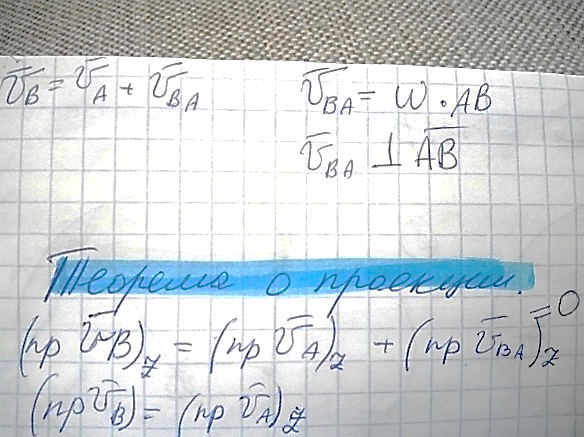 v̅_B = v̅_A + v̅_BA
v̅_BA = ω · AB
v̅_BA ⊥ A̅B̅
Теорема о проекции.
(пр v̅_B)_z = (пр v̅_A)_z + (пр v̅_BA)_z = 0
(пр v̅_B) = (пр v̅_A)_z